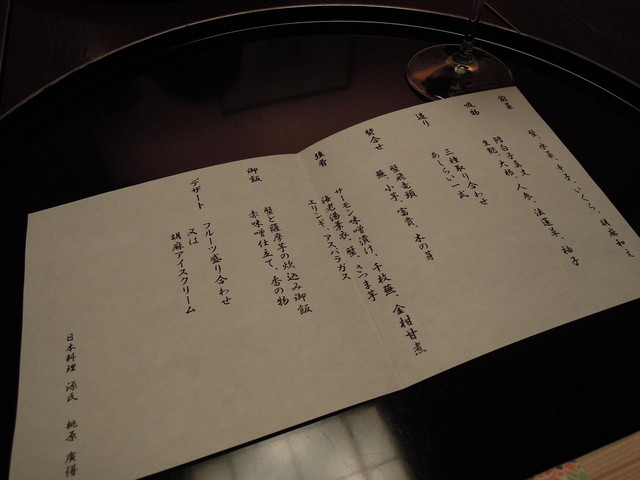 前菜
蟹、水菜、李子、いくら、胡麻和え
吸物
鱈白子真丈
生麩、大根、人参、法蓮草、柚子
造り
三種取り合わせ
あしらい一式
蟹合せ
蟹飛龍頭
蕪、小芋、富貴、木の芽
強肴
サーモン味噌漬け、千枚蕪、金柑甘煮
海老湯葉衣、蟹、さつま芋
エリンギ、アスパラガス
御飯
蟹と薩摩芋の炊込み御飯
赤味噌仕立て、香の物
デザート
フルーツ盛り合わせ
又は
胡麻アイスクリーム
日本料理 源氏 桃原 廣得